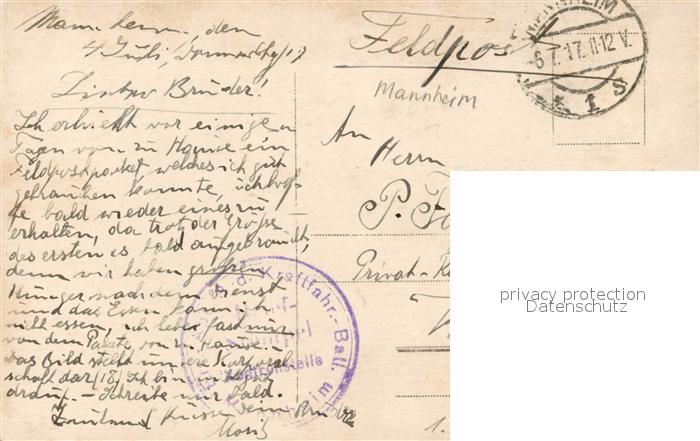 Mannheim, den
4 Juli, Donnerstag 17
Lieber Bruder!
Ich erhielt vor einigen
Tagen von zu Hause ein
Feldpostpacket welches ich gut
gebrauchen konnte, ich hof-
fe bald wieder eines zu
erhalten, da trotz der Größe
des ersten es bald aufgebraucht,
denn wir haben großen
Hunger nach dem Dienst
und das Essen kann ich
nicht essen, ich lebe fast nur
von dem Pakete von zu Hause.
Das Bild stellt unsere Korporal
schaft dar (18). Ich bin
drauf. – Schreibe mir bald.
Küsse Dein Bruder
Moritz
Feldpost
MANNHEIM
-6.7.17.11-12 V.
* 1 s
Mannheim
An
Herrn
P.
Privat-
1.
d. Kraftfahr.- Batl.
Brief-
stempel
Kontrollstelle
privacy protection
Datenschutz